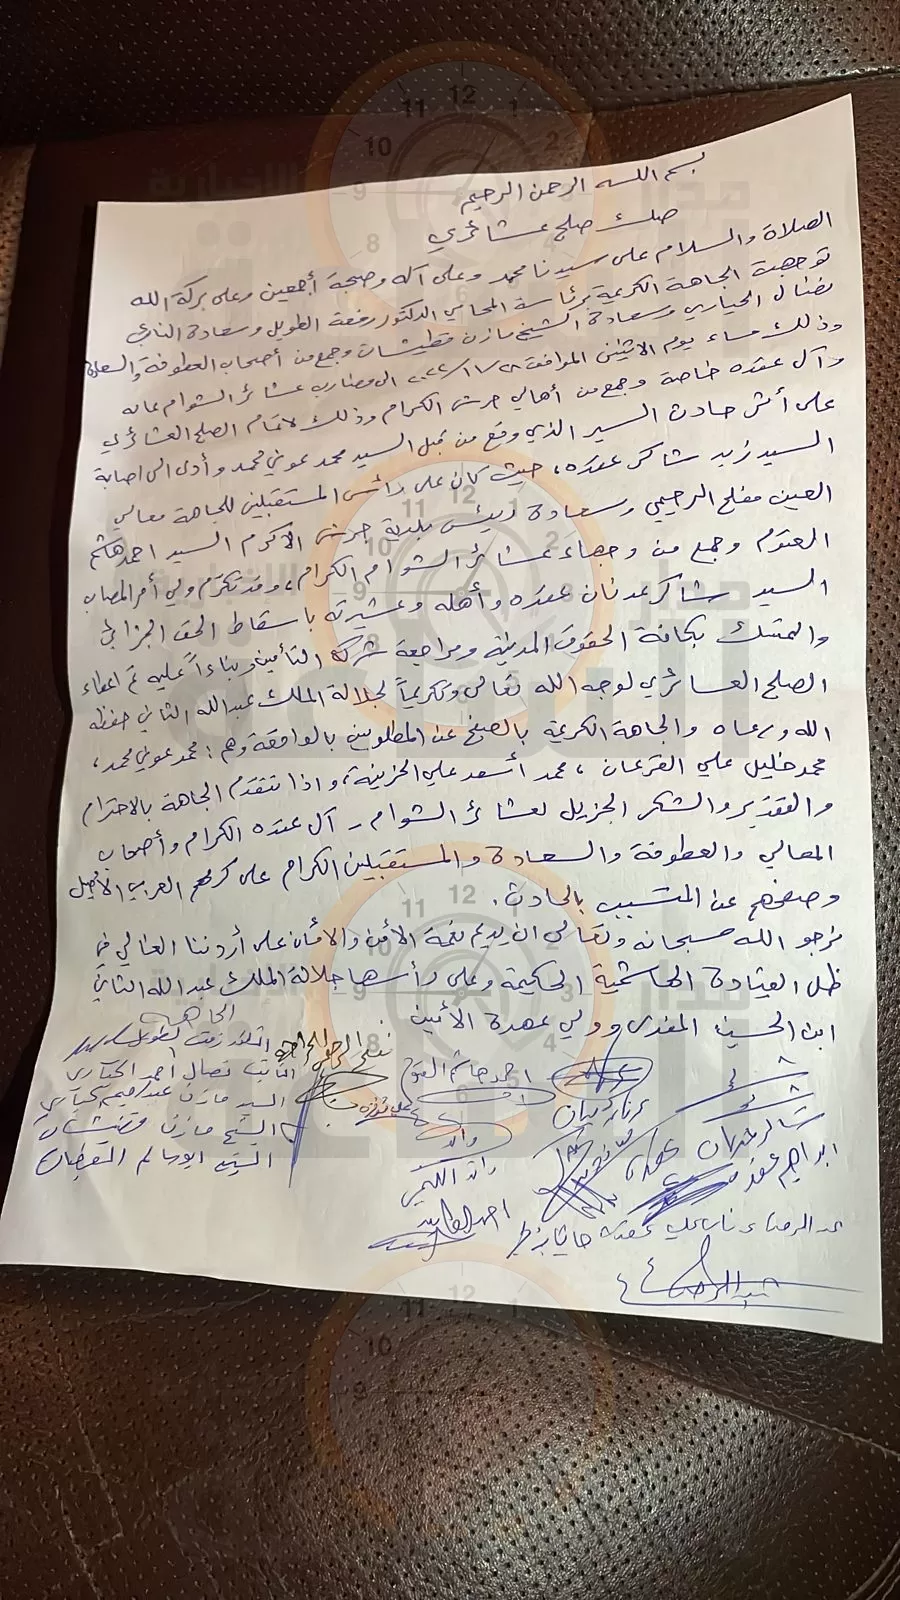 بسم الله الرحمن الرحيم
صك صلح عشائري
الصلاة والسلام على سيدنا محمد وعلى آله وصحبه أجمعين وعلى بركة الله
توجهت الجاهة الكريمة برئاسة المحامي الدكتور رفعت الطويل وسعادة النائب
نضال الحياري وسعادة الشيخ مازن قطيشات وجمع من أصحاب العطوفة والسعادة
وذلك مساء يوم الاثنين الموافق ٢٠٢٢/١١/٢٨ الى مضارب عشائر الشوام عامه
وآل عقده خاصة وجمع من أهالي جرش الكرام وذلك لاتمام الصلح العشائري
على أثر حادث السير الذي وقع من قبل السيد محمد عوني محمد وأدى الى اصابة
السيد زيد شاكر عقده، حيث كان على رأس المستقبلين للجاهة معالي
العين مفلح الرحيمي وسعادة رئيس بلدية جرش الاكرم السيد احمد هاشم
العتوم وجمع من وجهاء عشائر الشوام الكرام، وقد تكرم ولي أمر المصاب
السيد شاكر عدنان عقده وأهله وعشيرته باسقاط الحق الجزائي
والتمسك بكافة الحقوق المدنية ومراجعة شركة التأمين وبناءاً عليه تم اعفاء
الصلح العشائري لوجه الله تعالى وتكريماً لجلالة الملك عبدالله الثاني حفظه
الله ورعاه والجاهة الكريمة بالصفح عن المطلوبين بالموافقة وهم: محمد عوني محمد،
محمد خليل علي القرعان، محمد أسعد علي الخزينة، واذا تتقدم الجاهة بالاحترام
والتقدير والشكر الجزيل لعشائر الشوام - آل عقده الكرام وأصحاب
المعالي والعطوفة والسعادة والمستقبلين الكرام على كرمهم العربي الأصيل
وصفحهم عن المتسبب بالحادث.
نرجو الله سبحانه وتعالى ان يديم نعمة الأمن والأمان على أردننا الغالي في
ظل القيادة الهاشمية الحكيمة وعلى رأسها جلالة الملك عبدالله الثاني
ابن الحسين المفدى وولي عهدة الأمين
الجاهة
الدكتور رفعت الطويل
النائب نضال احمد الحياري
السيد مازن عبدالرحيم الحياري
الشيخ مازن قطيشات
السيد ابو سالم
مفلح الرحيمي
احمد هاشم العتوم
رائد
احمد
شاكر عدنان عقده
ابراهيم عقده
12
11
1
10
2
9
3
8
4
مدار الساعة الاخبارية